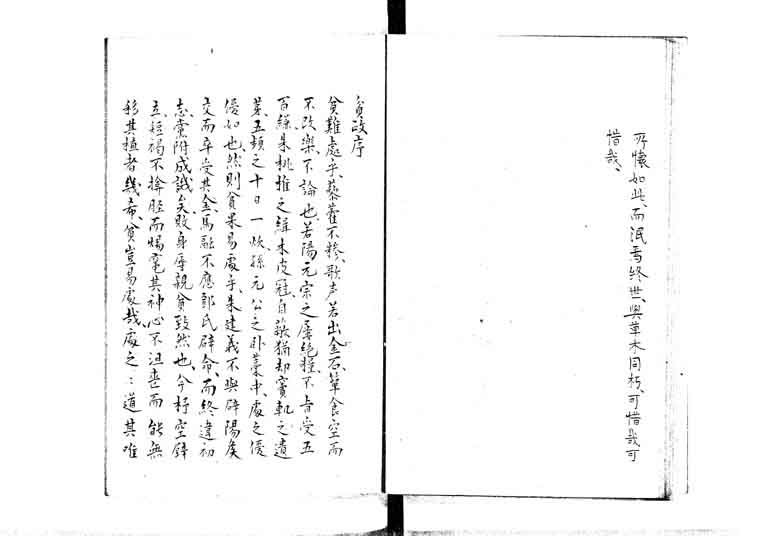 所懷如此、而泯焉終世、與草木同朽、可惜哉可
惜哉、
貧政序
貧難處乎、藜藿不糝、歌声若出金石、簞食空而
不改樂、不論也、若陽元宗之屢絶糧、不肯受五
百縑、朱桃椎之緝木皮冠、自蔽猶却竇軌之遺
第五頡之十日一炊、孫元公之卧藁中、處之優
優如也、然則貧果易處乎、朱建義不與辟陽矦
交而卒受其金、馬融不應鄧氏辟命、而終違初
志、黨附成譏矣、敗身辱親、貧致然也、今杼空鐸
立、短褐不揜脛而惕、毫其神心不沮喪而能無
移其植者幾希、貧豈易處哉、處之之道、其唯